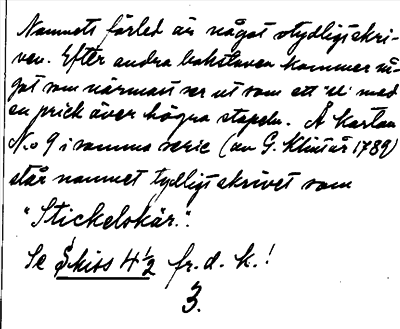 Namnets förled är något otydligt skri-
ven. Efter andra bokstaven kommer nå-
got som närmast ser ut som ett "u" med
en prick över högra stapeln. Å kartan
N:o 9 i samma serie (av G. Klint år 1789)
står namnet tydligt skrivet som
"Stickelskär".
Se Skiss 4½ fr. d. k.!
3.